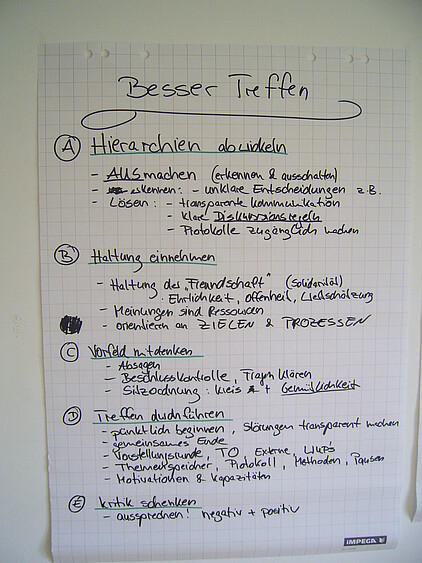 Besser Treffen
A Hierarchien abwickeln
- AUSmachen (erkennen & ausschalten)
- erkennen: - unklare Entscheidungen z.B.
- Lösen: - transparente Kommunikation
- klare Diskussionsregeln
- Protokolle zugänglich machen
B Haltung einnehmen
- Haltung der "Freundschaft" (Solidarität)
· Ehrlichkeit, Offenheit, Wertschätzung
- Meinungen sind Ressourcen
- orientieren an ZIELEN & PROZESSEN
C Vorfeld mitdenken
- Absagen
- Beschlusskontrolle, Fragen klären
- Sitzordnung: Kreis + Gemütlichkeit
D Treffen durchführen
- pünktlich beginnen, Störungen transparent machen
- gemeinsames Ende
- Vorstellungsrunde, TO Externe, WUPs
- Themenspeicher, Protokoll, Methoden, Pausen
- Motivationen & Kapazitäten
E Kritik schenken
- aussprechen! negativ + positiv
IMPEGA